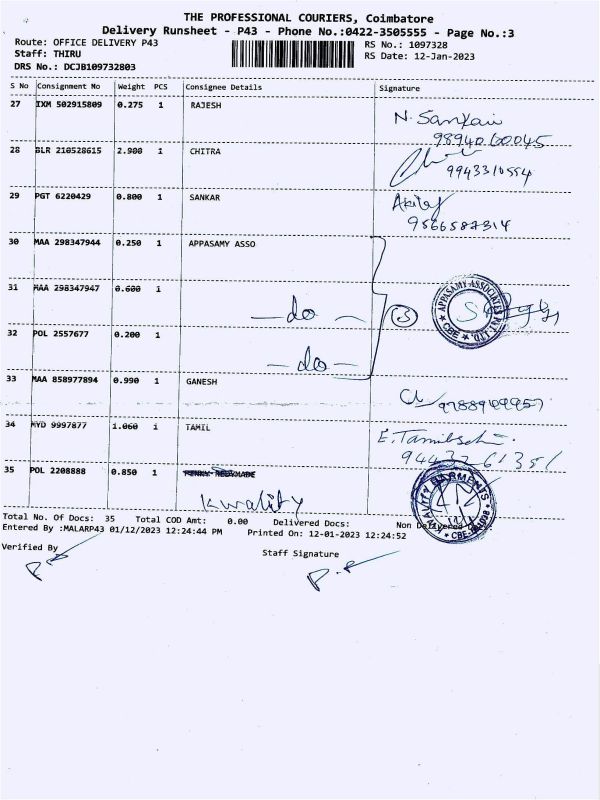 THE PROFESSIONAL COURIERS, Coimbatore
Delivery Runsheet - P43 - Phone No.:0422-3505555 - Page No.:3
Route: OFFICE DELIVERY P43
RS No.: 1097328
Staff: THIRU
RS Date: 12-Jan-2023
DRS No.: DCJB109732803
S No Consignment No Weight PCS Consignee Details Signature
27 IXM 502915809 0.275 1 RAJESH
N. Sankar
9894060045
28 BLR 210528615 2.900 1 CHITRA
9943310554
29 PGT 6220429 0.800 1 SANKAR
9566587314
30 MAA 298347944 0.250 1 APPASAMY ASSO
31 MAA 298347947 0.600 1
- do -
3
APPASAMY ASSOCIATES PVT. LTD. * CBE *
32 POL 2557677 0.200 1
- do -
33 MAA 858977894 0.990 1 GANESH
34 MYD 9997877 1.060 1 TAMIL
35 POL 2208888 0.850 1
Kwality
KWALITY GARMENTS
Total No. Of Docs: 35 Total COD Amt: 0.00 Delivered Docs: Non Delivered
Entered By :MALARP43 01/12/2023 12:24:44 PM Printed On: 12-01-2023 12:24:52
Verified By
Staff Signature